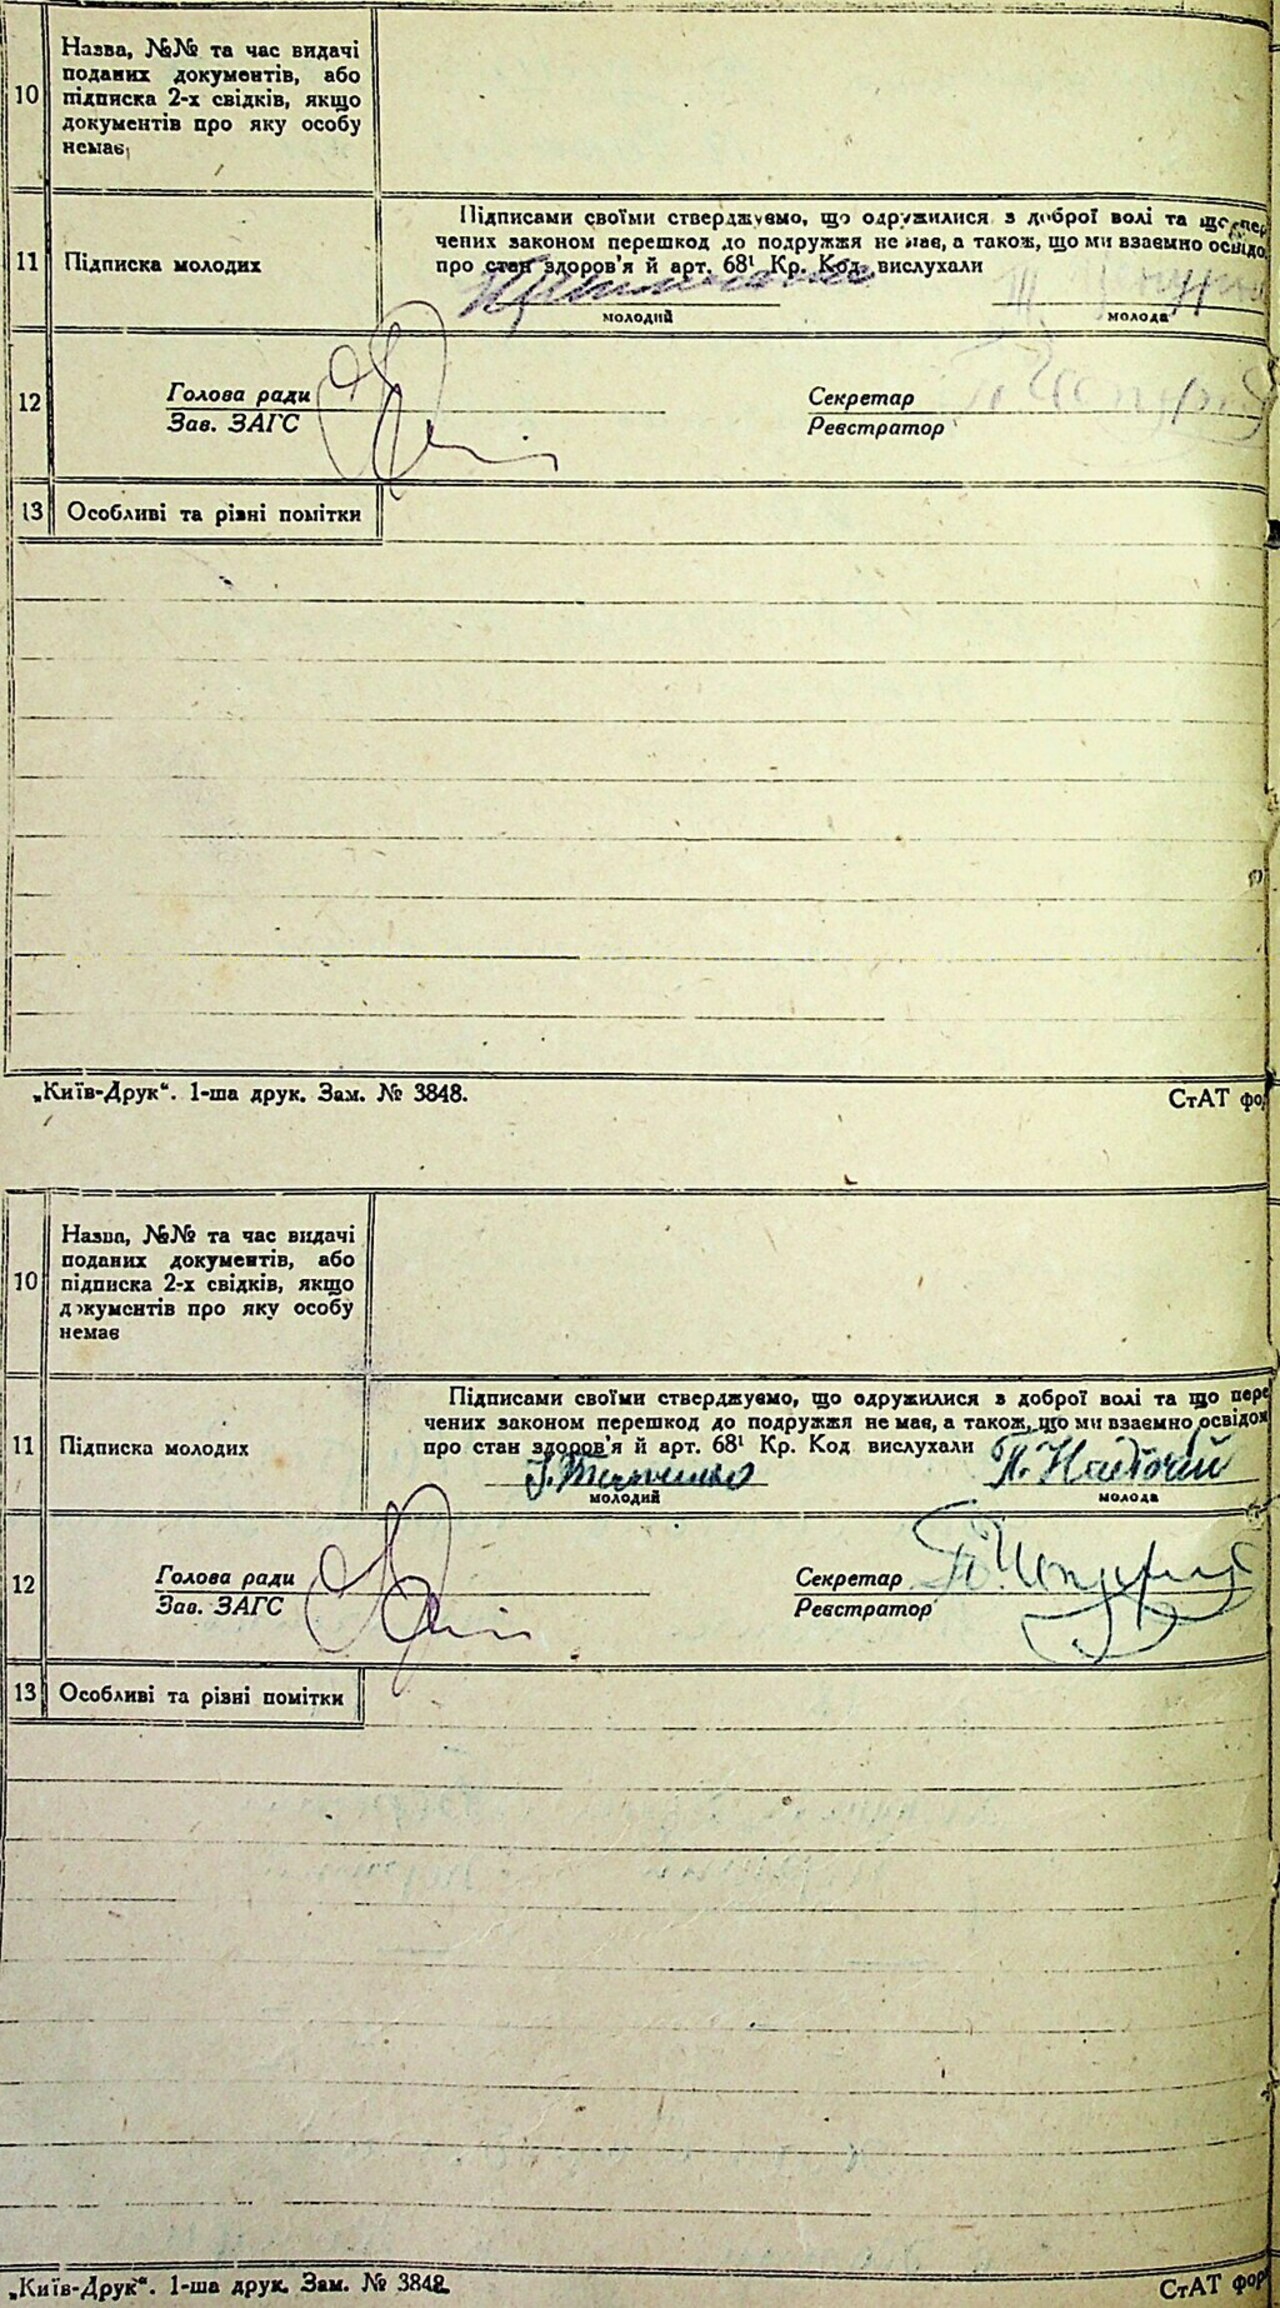 10
Назва, №№ та час видачі
поданих документів, або
підписка 2-х свідків, якщо
документів про яку особу
немає
11
Підписка молодих
Підписами своїми стверджуємо, що одружилися з доброї волі та що пер
чених законом перешкод до подружжя не має, а також, що ми взаємно освідо
про стан здоров'я й арт. 68¹ Кр. Код. вислухали
молодий
молода
12
Голова ради
Зав. ЗАГС
Секретар
Реєстратор
13
Особливі та різні помітки
„Київ-Друк“. 1-ша друк. Зам. № 3848.
СтАТ фо
10
Назва, №№ та час видачі
поданих документів, або
підписка 2-х свідків, якщо
документів про яку особу
немає
11
Підписка молодих
Підписами своїми стверджуємо, що одружилися з доброї волі та що пере
чених законом перешкод до подружжя не має, а також, що ми взаємно освідом
про стан здоров'я й арт. 68¹ Кр. Код вислухали
молодий
молода
12
Голова ради
Зав. ЗАГС
Секретар
Реєстратор
13
Особливі та різні помітки
„Київ-Друк“. 1-ша друк. Зам. № 3848.
СтАТ фор